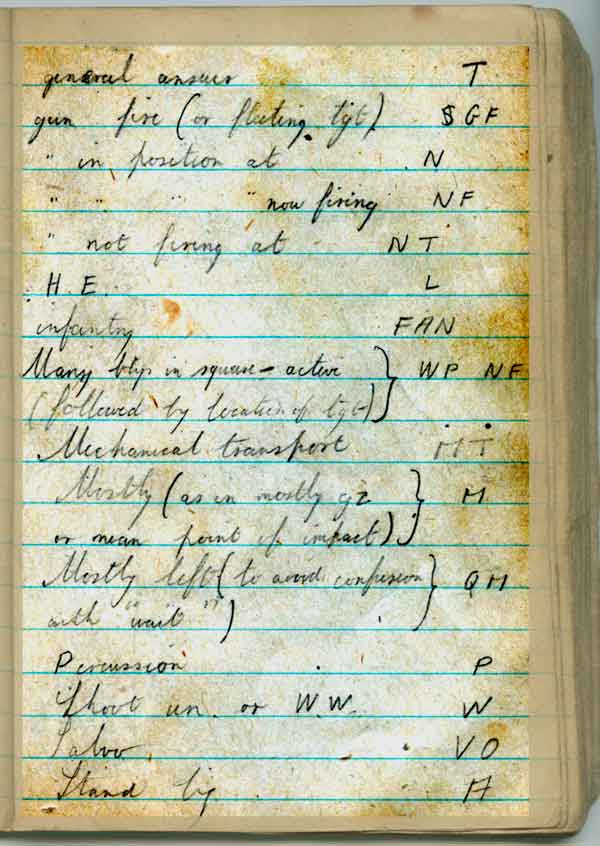 general answer T
gun fire (or fleeting tgt) GF
" in position at N
" " " " now firing NF
" not firing at NT
H.E. L
infantry FAN
Many btys in square - active } WP NF
(followed by location of tgt)
Mechanical transport MT
Mostly (as in mostly gz } M
or mean point of impact)
Mostly left (to avoid confusion } QM
with "wait")
Percussion P
Shoot un. or W.W. W
Salvo VO
Stand by H